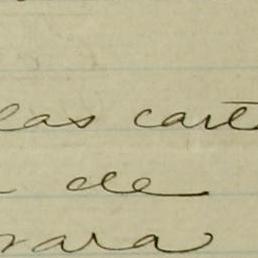 las cart
de
rara